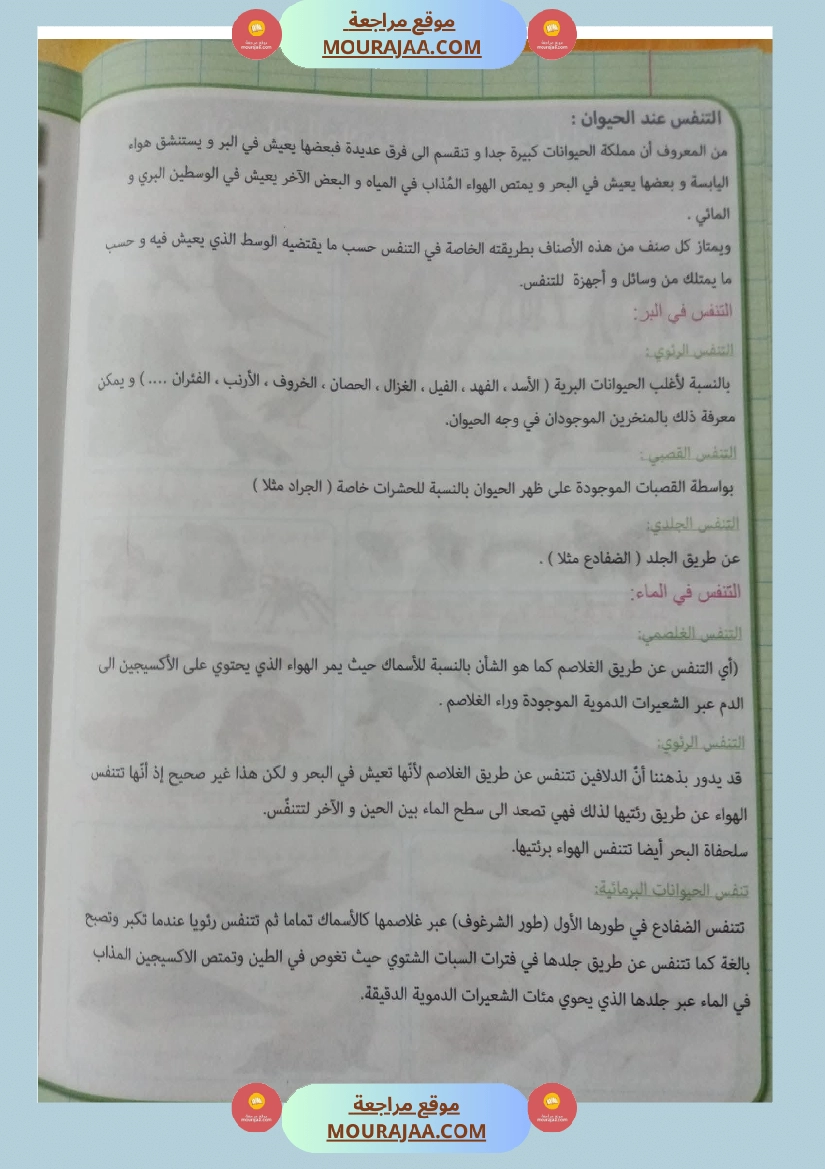 موقع مراجعة
MOURAJAA.COM
التنفس عند الحيوان :
من المعروف أن مملكة الحيوانات كبيرة جدا و تنقسم الى فرق عديدة فبعضها يعيش في البر و يستنشق هواء
اليابسة و بعضها يعيش في البحر و يمتص الهواء المُذاب في المياه و البعض الآخر يعيش في الوسطين البري و
المائي .
ويمتاز كل صنف من هذه الأصناف بطريقته الخاصة في التنفس حسب ما يقتضيه الوسط الذي يعيش فيه و حسب
ما يمتلك من وسائل و أجهزة للتنفس.
التنفس في البر:
التنفس الرئوي :
بالنسبة لأغلب الحيوانات البرية ( الأسد ، الفهد ، الفيل ، الغزال ، الحصان ، الخروف ، الأرنب ، الفئران .... ) و يمكن
معرفة ذلك بالمنخرين الموجودان في وجه الحيوان.
التنفس القصبي :
بواسطة القصبات الموجودة على ظهر الحيوان بالنسبة للحشرات خاصة ( الجراد مثلا )
التنفس الجلدي:
عن طريق الجلد ( الضفادع مثلا ) .
التنفس في الماء:
التنفس الغلصمي:
(أي التنفس عن طريق الغلاصم كما هو الشأن بالنسبة للأسماك حيث يمر الهواء الذي يحتوي على الأكسيجين الى
الدم عبر الشعيرات الدموية الموجودة وراء الغلاصم .
التنفس الرئوي:
قد يدور بذهننا أنّ الدلافين تتنفس عن طريق الغلاصم لأنّها تعيش في البحر و لكن هذا غير صحيح إذ أنّها تتنفس
الهواء عن طريق رئتيها لذلك فهي تصعد الى سطح الماء بين الحين و الآخر لتتنفّس.
سلحفاة البحر أيضا تتنفس الهواء برئتيها.
تنفس الحيوانات البرمائية:
تتنفس الضفادع في طورها الأول (طور الشرغوف) عبر غلاصمها كالأسماك تماما ثم تتنفس رئويا عندما تكبر وتصبح
بالغة كما تتنفس عن طريق جلدها في فترات السبات الشتوي حيث تغوص في الطين وتمتص الاكسيجين المذاب
في الماء عبر جلدها الذي يحوي مئات الشعيرات الدموية الدقيقة.
موقع مراجعة
MOURAJAA.COM